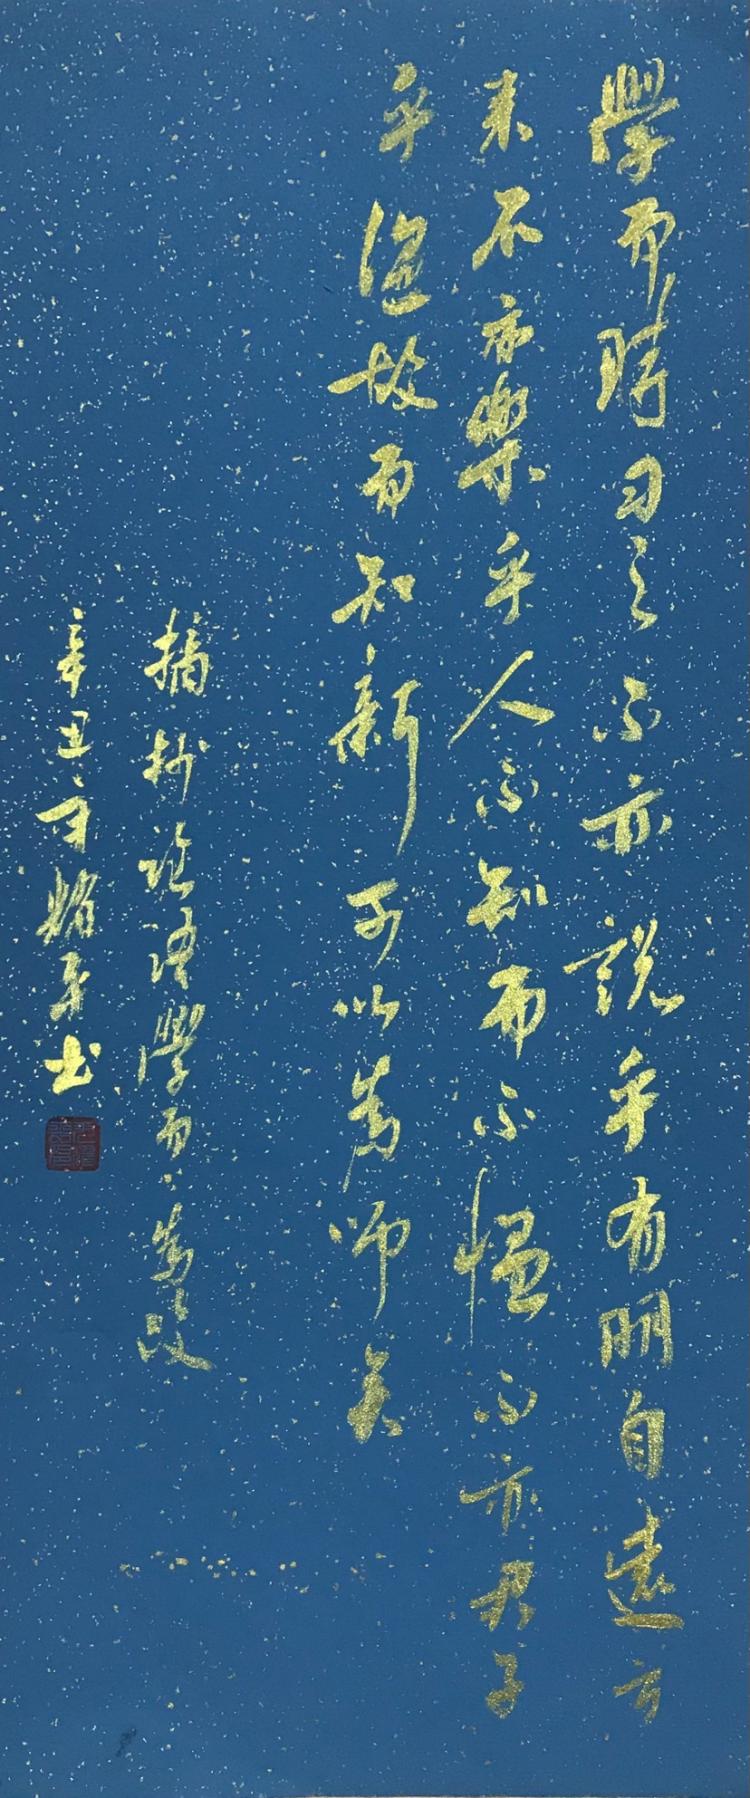 學而時习之不亦説乎有朋自遠方
来不亦樂乎人不知而不愠不亦君子
乎温故而知新可以為師矣
摘抄論語學而、為政
辛丑书